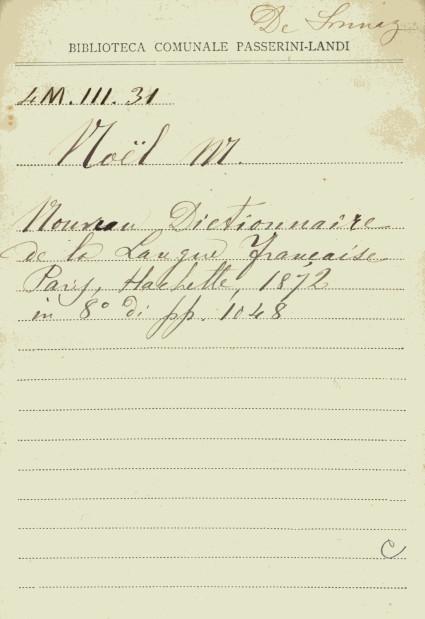 De Sonnaz
BIBLIOTECA COMUNALE PASSERINI-LANDI
4M. III. 31
Noël M.
Nouveau Dictionnaire
de la Langue française
Paris, Hachette, 1872
in 8° di pp. 1048
C